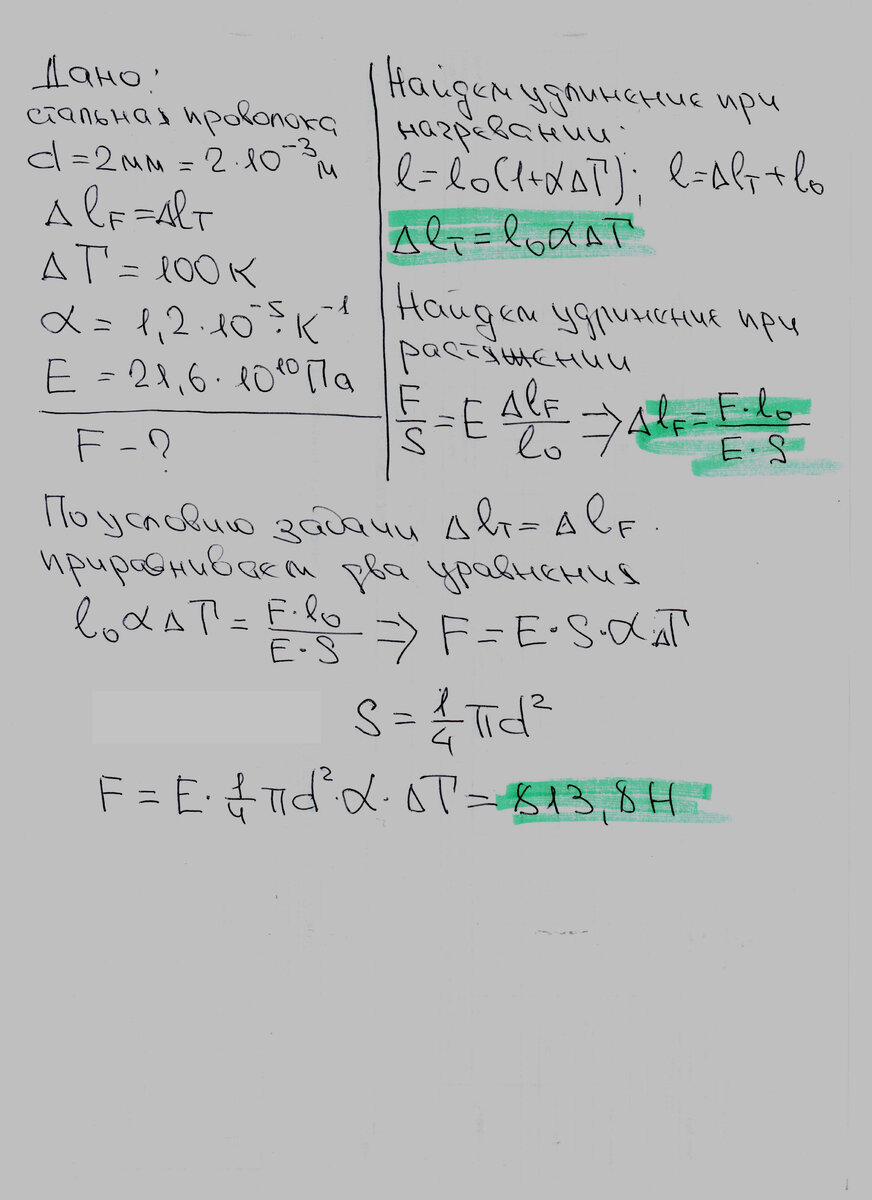 Дано:
стальная проволока
d = 2мм = 2·10⁻³м
Δl_F = Δl_T
ΔT = 100К
α = 1,2·10⁻⁵·К⁻¹
E = 21,6·10¹⁰Па
F – ?
Найдем удлинение при
нагревании:
l = l₀(1+αΔT); l = Δl_T + l₀
Δl_T = l₀αΔT
Найдем удлинение при
растяжении
F/S = E Δl_F/l₀ ⇒ Δl_F = F·l₀/E·S
По условию задачи Δl_T = Δl_F.
приравниваем два уравнения
l₀αΔT = F·l₀/E·S ⇒ F = E·S·α·ΔT
S = 1/4 πd²
F = E·1/4 πd²·α·ΔT = 813,8Н